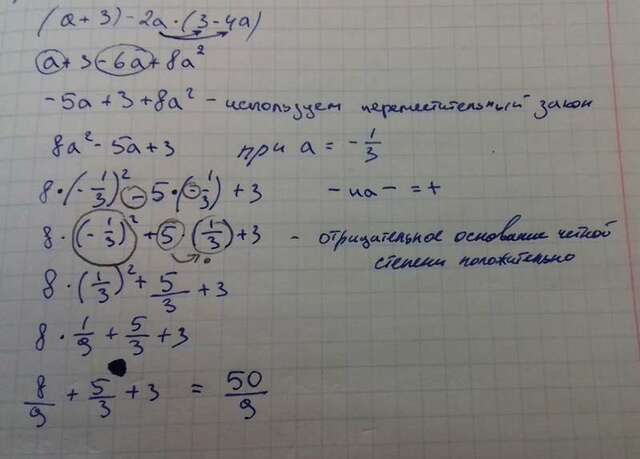 (a+3)-2a·(3-4a)
a+3-6a+8a²
-5a+3+8a² - используем переместительный закон
8a²-5a+3 при a = -1/3
8·(-1/3)²-5·(-1/3)+3 - на - = +
8·(-1/3)²+5(1/3)+3 - отрицательное основание четной степени положительно
8·(1/3)²+5/3+3
8·1/9+5/3+3
8/9+5/3+3 = 50/9